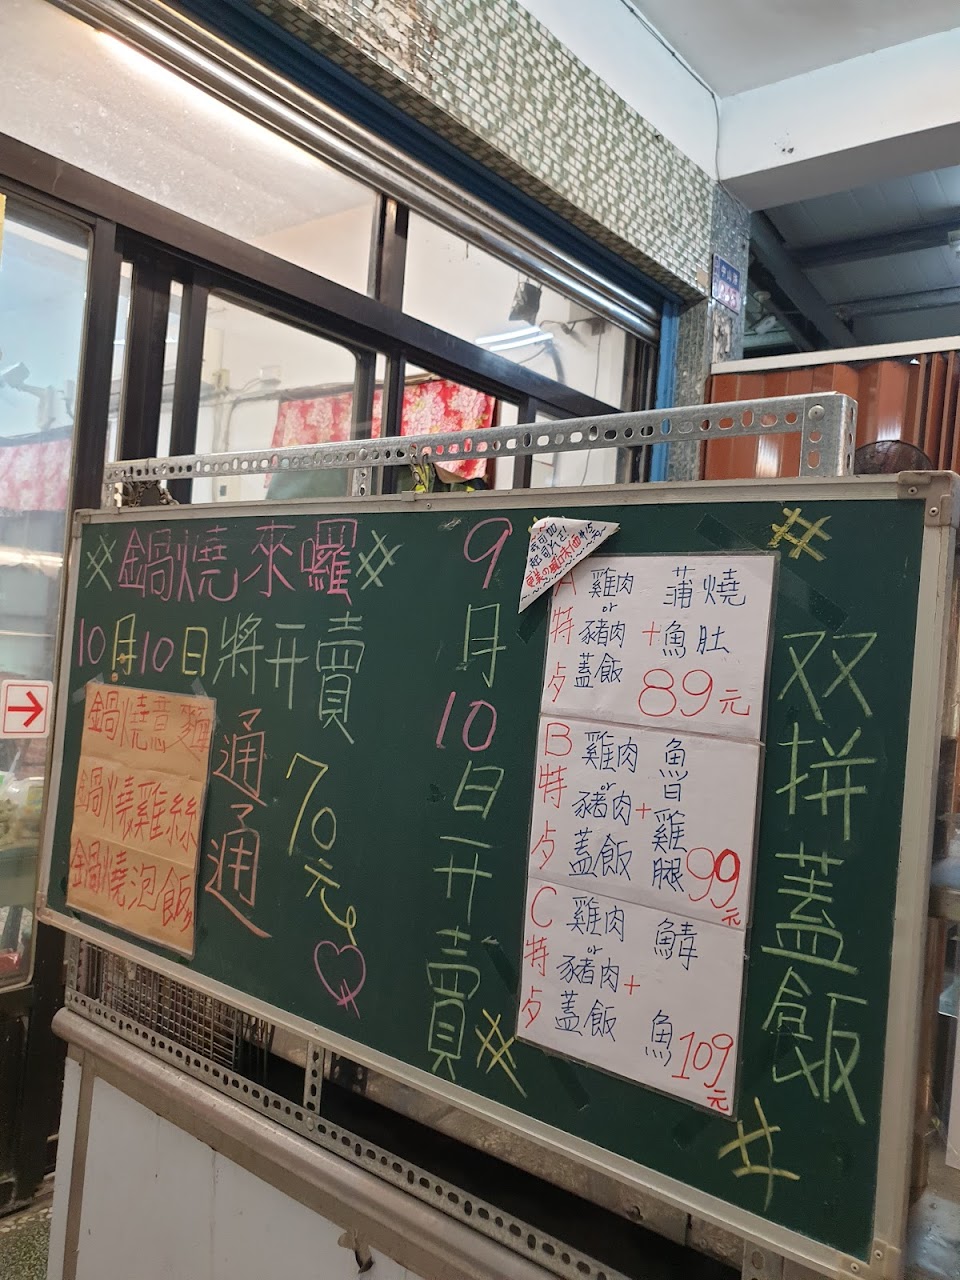 #鍋燒來囉#
10月10日將开賣
鍋燒意麵
鍋燒雞絲
鍋燒泡飯
通通
70元
9月10日开賣#
#
A特夕
雞肉
or
豬肉
蓋飯
+
蒲燒
魚肚
89元
B特夕
雞肉
or
豬肉
蓋飯
+
魯雞腿
99元
C特夕
雞肉
or
豬肉
蓋飯
+
鯖魚
109元
双拼蓋飯
#